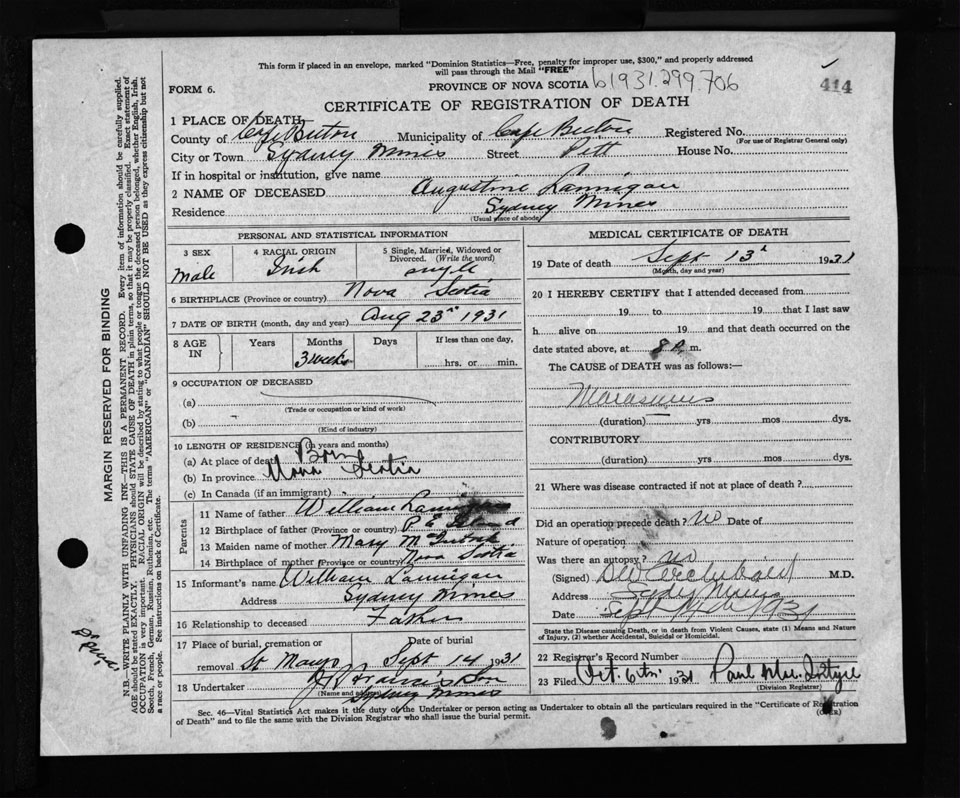 This form if placed in an envelope, marked "Dominion Statistics—Free, penalty for improper use, $300," and properly addressed
will pass through the Mail "FREE"
FORM 6.
PROVINCE OF NOVA SCOTIA
b1931.299.706
414
CERTIFICATE OF REGISTRATION OF DEATH
1 PLACE OF DEATH,
County of Cape Breton Municipality of Cape Breton Registered No.
(For use of Registrar General only)
City or Town Sydney Mines Street Pitt House No.
If in hospital or institution, give name
2 NAME OF DECEASED Augustine Lannigan
Residence Sydney Mines
(Usual place of abode)
PERSONAL AND STATISTICAL INFORMATION
3 SEX 4 RACIAL ORIGIN 5 Single, Married, Widowed or
Divorced. (Write the word)
Male Irish single
6 BIRTHPLACE (Province or country) Nova Scotia
7 DATE OF BIRTH (month, day and year) Aug 23rd 1931
8 AGE IN Years Months Days If less than one day,
3 weeks hrs. or min.
9 OCCUPATION OF DECEASED
(a)
(Trade or occupation or kind of work)
(b)
(Kind of industry)
10 LENGTH OF RESIDENCE (in years and months)
(a) At place of death Born
(b) In province Nova Scotia
(c) In Canada (if an immigrant)
Parents
11 Name of father William Lannigan
12 Birthplace of father (Province or country) P E Island
13 Maiden name of mother Mary
14 Birthplace of mother (Province or country) Nova Scotia
15 Informant's name William Lannigan
Address Sydney Mines
16 Relationship to deceased Father
17 Place of burial, cremation or Date of burial
removal St Marys Sept 14 1931
18 Undertaker Francis & Son
(Name and
Sydney Mines
MEDICAL CERTIFICATE OF DEATH
19 Date of death Sept 13th 1931
(Month, day and year)
20 I HEREBY CERTIFY that I attended deceased from
19 to 19 that I last saw
h alive on 19 and that death occurred on
date stated above, at 8 P. m.
The CAUSE of DEATH was as follows:—
Marasmus
(duration) yrs mos dys.
CONTRIBUTORY
(duration) yrs mos dys.
21 Where was disease contracted if not at place of death?
Did an operation precede death? No Date of
Nature of operation
Was there an autopsy? no
(Signed) Archibald M.D.
Address Sydney Mines
Date Sept 14th 1931
State the Disease causing Death, or in death from Violent Causes, state (1) Means and Nature
of Injury, (2) whether Accidental, Suicidal or Homicidal.
22 Registrar's Record Number
23 Filed Oct. 6th 1931 Paul
(Division Registrar)
Sec. 46—Vital Statistics Act makes it the duty of the Undertaker or person acting as Undertaker to obtain all the particulars required in the "Certificate of Registration
of Death" and to file the same with the Division Registrar who shall issue the burial permit.
(OVER)
MARGIN RESERVED FOR BINDING
N.B.—WRITE PLAINLY WITH UNFADING INK—THIS IS A PERMANENT RECORD. Every item of information should be carefully supplied.
AGE should be stated EXACTLY. PHYSICIANS should STATE CAUSE OF DEATH in plain terms, so that it may be properly classified. Exact statement of
OCCUPATION is very important. RACIAL ORIGIN will be described by stating to what people or tongue the deceased person belonged, whether English, Irish,
Scotch, French, German, Russian, Ruthenian, etc. The terms "AMERICAN" or "CANADIAN" SHOULD NOT BE USED as they express citizenship but not
a race or people. See instructions on back of Certificate.